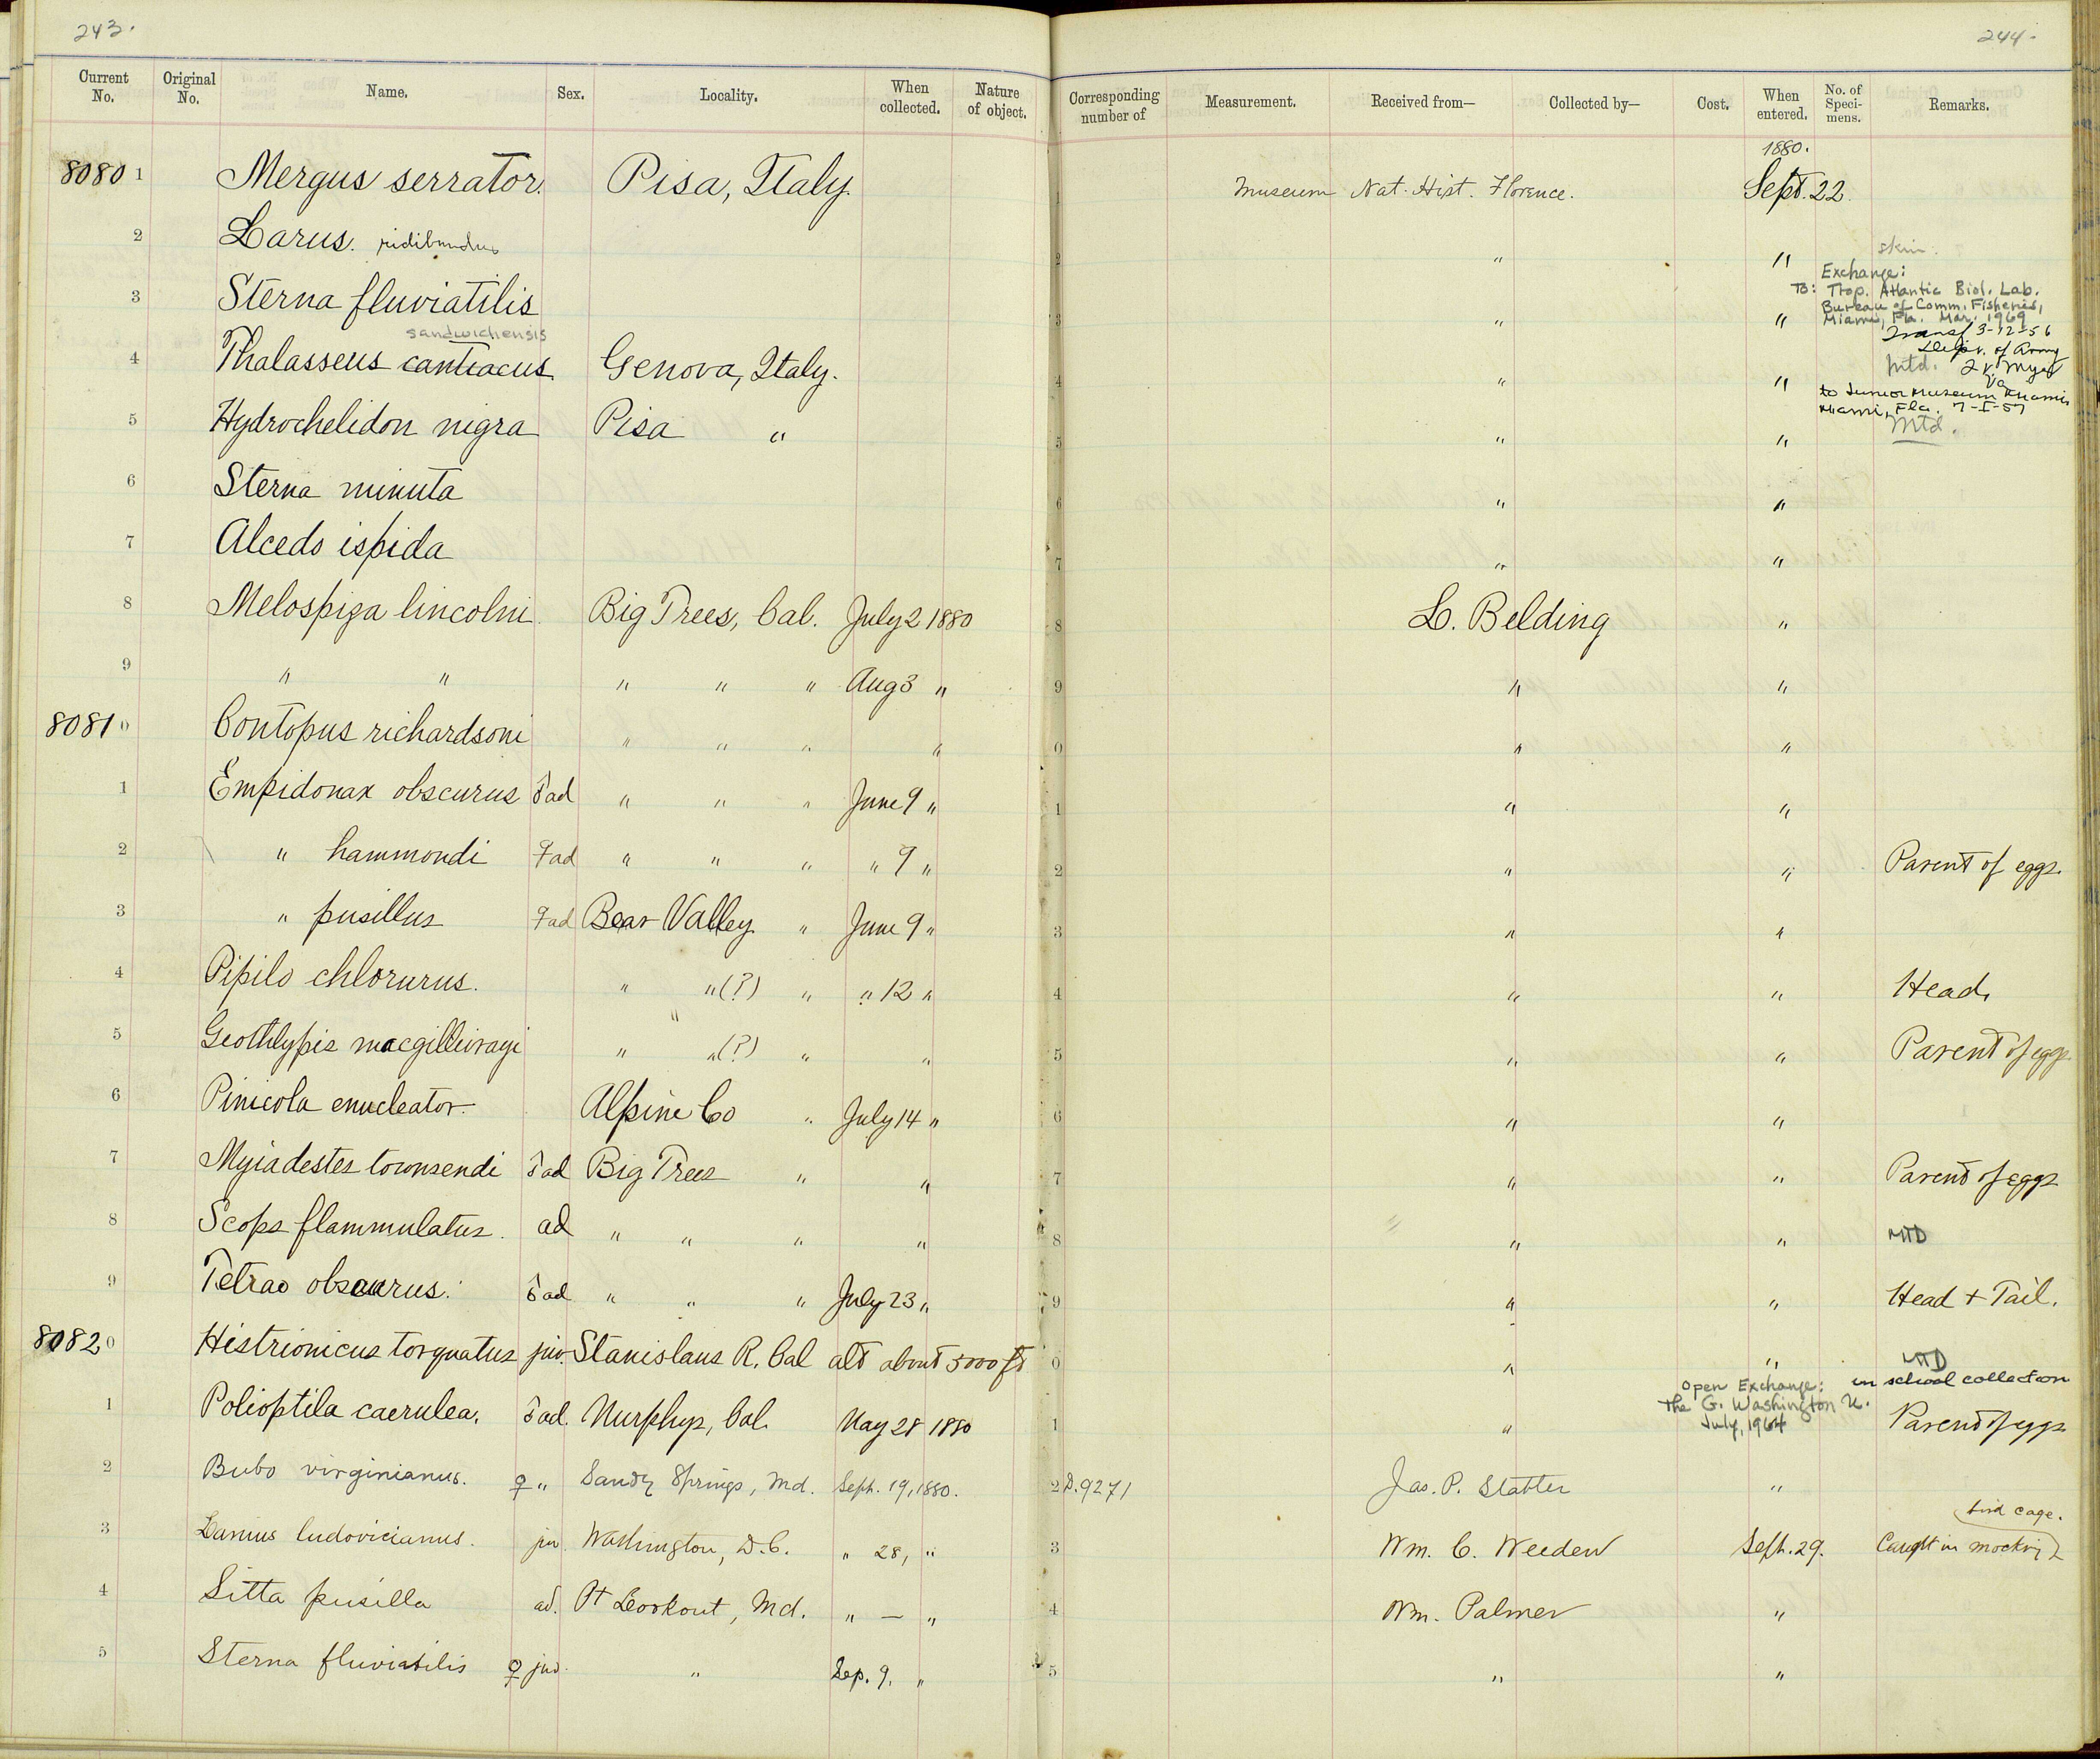 243.
244.
Current No. Original No. Name. Sex. Locality. When collected. Nature of object. Corresponding number of Measurement. Received from— Collected by— Cost. When entered. No. of Specimens. Remarks.
1880.
8080 1 Mergus serrator. Pisa, Italy. 1 Museum Nat. Hist. Florence. Sept. 22.
2 Larus. ridibundus 2 " " skin.
Exchange:
To: Trop. Atlantic Biol. Lab.
Bureau of Comm. Fisheries,
Miami, Fla. Mar. 1969
3 Sterna fluviatilis 3 " "
Transf 3-12-56
Dept. of Army
sandwichensis
4 Thalasseus cantiacus Genova, Italy. 4 " " Mtd. Ft. Myer Va
to Junior Museum Miami
Miami, Fla. 7-I-57
5 Hydrochelidon nigra Pisa " 5 " " Mtd.
6 Sterna minuta 6 " "
7 Alcedo ispida 7 " "
8 Melospiza lincolni Big Trees, Cal. July 2 1880 8 L. Belding "
9 " " " " " Aug 3 " 9 " "
8081 0 Contopus richardsoni " " " " 0 " "
1 Empidonax obscurus ♂ ad " " " June 9 " 1 " "
2 " hammondi ♀ ad " " " " 9 " 2 " " Parent of eggs.
3 " pusillus ♀ ad Bear Valley " June 9 " 3 " "
4 Pipilo chlorurus. " " (?) " " 12 " 4 " " Head.
5 Geothlypis macgillivrayi " " (?) " " 5 " " Parent of eggs
6 Pinicola enucleator. Alpine Co " July 14 " 6 " "
7 Myiadestes townsendi ♂ ad Big Trees " " 7 " " Parent of eggs
8 Scops flammulatus. ad " " " " 8 " " MTD
9 Tetrao obscurus. ♂ ad " " " July 23 " 9 " " Head + Tail.
8082 0 Histrionicus torquatus juv. Stanislaus R. Cal alt about 5000 ft 0 " " MTD
in school collection
Open Exchange:
The G. Washington U.
July, 1964
1 Polioptila caerulea. ♂ ad. Murphys, Cal. May 28 1880 1 " Parent of eggs
2 Bubo virginianus. ♀ " Sandy Springs, Md. Sept. 19, 1880. 2 D.9271 Jas. P. Stabler "
bird cage.
3 Lanius ludovicianus. juv. Washington, D.C. " 28, " 3 Wm. C. Weeden Sept. 29. Caught in mocking
4 Sitta pusilla ad. Pt Lookout, Md. " — " 4 Wm. Palmer "
5 Sterna fluviatilis ♀ juv. " Sep. 9. " 5 " "